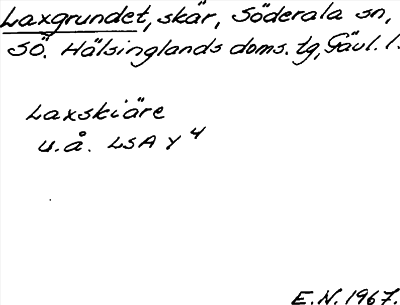 Laxgrundet, skär, Söderala sn,
SÖ. Hälsinglands doms. tg, Gävl. l.
Laxskiäre
u.å. LSA Y 4
E.N. 1967.